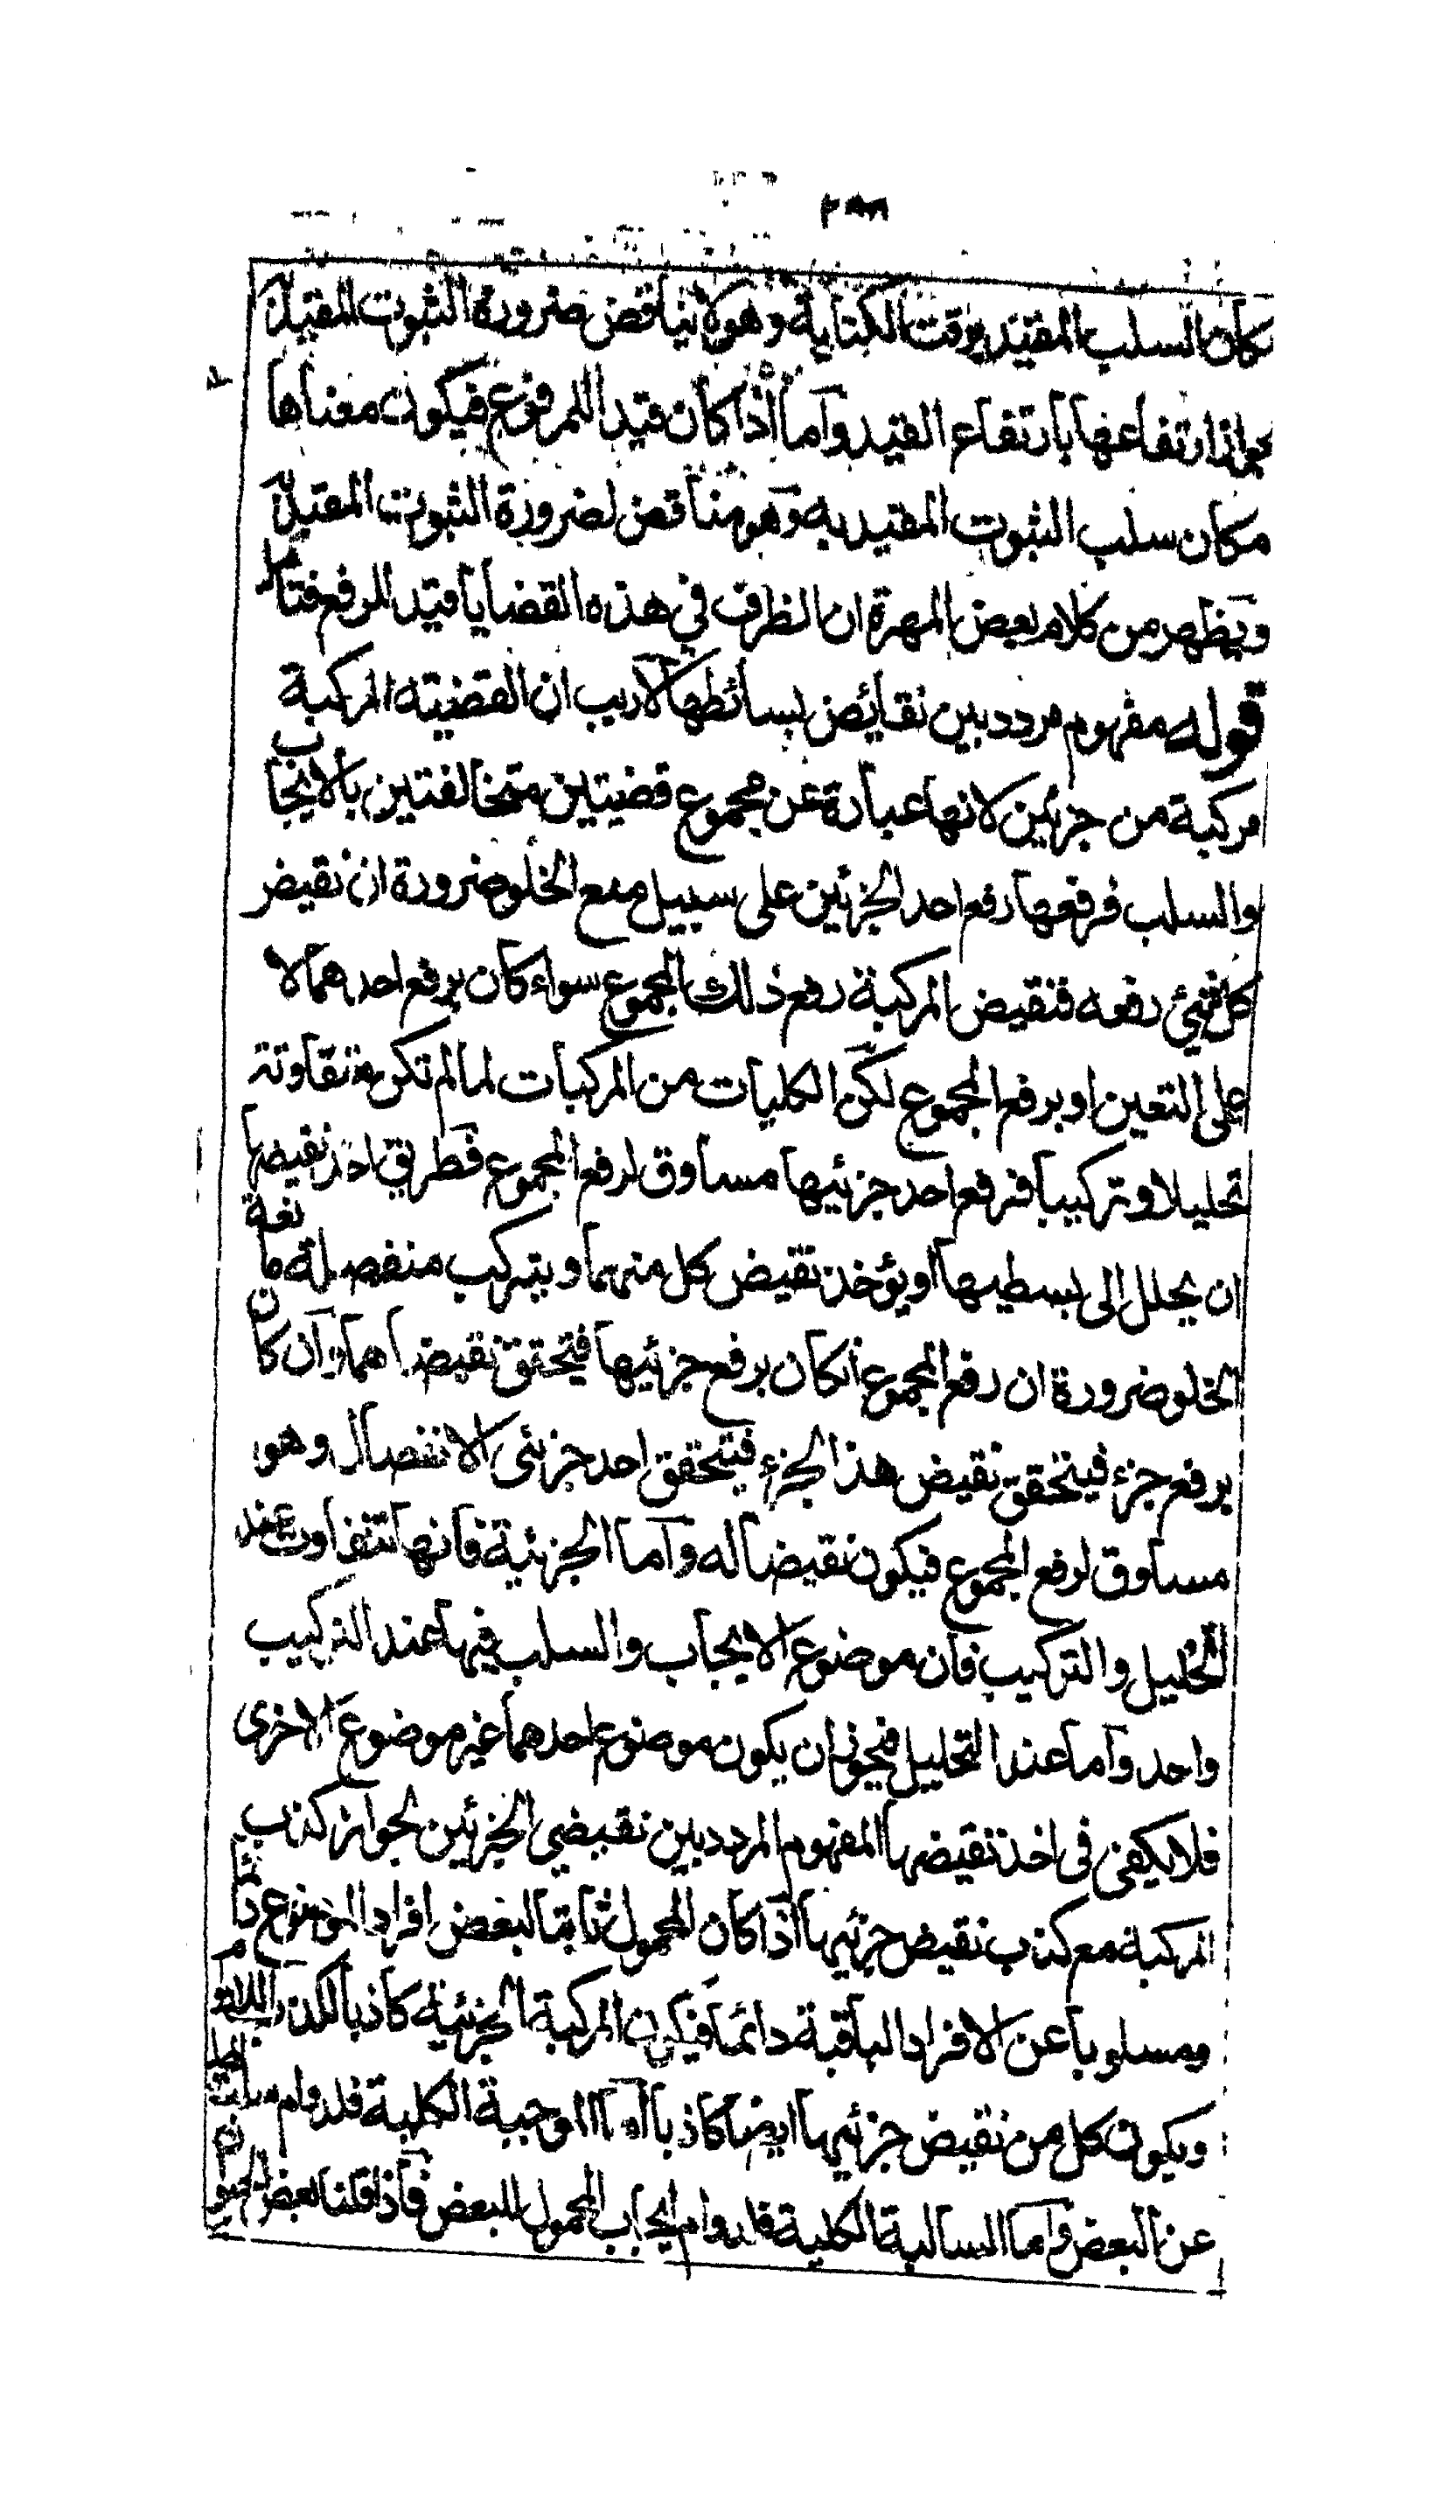 مكان السلب المقيد بوقت الكتابة وهو لا يناقض ضرورة الثبوت المقيد به
لجواز ارتفاعها بارتفاع القيد وآما اذا كان قيدا للمرفوع فيكون معناها
مكان سلب الثبوت المقيد به وهو مناقض لضرورة الثبوت المقيد به
ويظهر من كلام بعض المهرة ان الظرف في هذه القضايا قيد للرفع فتأمل
قوله مفهوم مردد بين نقائض بسائطها لا ريب ان القضية المركبة
مركبة من جزئين لانها عبارة عن مجموع قضيتين متخالفتين بالايجاب
والسلب فرفعها رفع احد الجزئين على سبيل منع الخلو ضرورة ان نقيض
كل شيئ رفعه فنقيض المركبة رفع ذلك المجموع سواء كان برفع احدهما لا
على التعين او برفع المجموع لكن الكليات من المركبات لما لم تكن متفاوتة
تحليلا وتركيبا فرفع احد جزئيها مساوق لرفع المجموع فطريق اخذ نقيضها
ان يحلل الى بسطيها ويؤخذ نقيض كل منهما ويتركب منفصلة مانعة
الخلو ضرورة ان رفع المجموع انكان برفع جزئيها فيتحقق نقيضاهما وان كان
برفع جزء فيتحقق نقيض هذا الجزء فيتحقق احد جزئى الانفصال وهو
مساوق لرفع المجموع فيكون نقيضا له وآما الجزئية فانها تتفاوت عند
التحليل والتركيب فان موضوع الايجاب والسلب فيها عند التركيب
واحد وآما عند التحليل فيجوز ان يكون موضوع احدهما غير موضوع الاخرى
فلا يكفى فى اخذ نقيضها المفهوم المردد بين نقيضي الجزئين لجواز كذب
المركبة مع كذب نقيض جزئيها اذا كان المحمول ثابتا لبعض افراد الموضوع دائما
ومسلوبا عن الافراد الباقية دائما فيكون المركبة الجزئية كاذبا لكذب اللادوام
ويكون كل من نقيض جزئيها ايضا كاذبا اما الموجبة الكلية فلدوام سلب المحمول
عن البعض وآما السالبة الكلية فلدوام ايجاب المحمول للبعض فاذا قلنا بعض